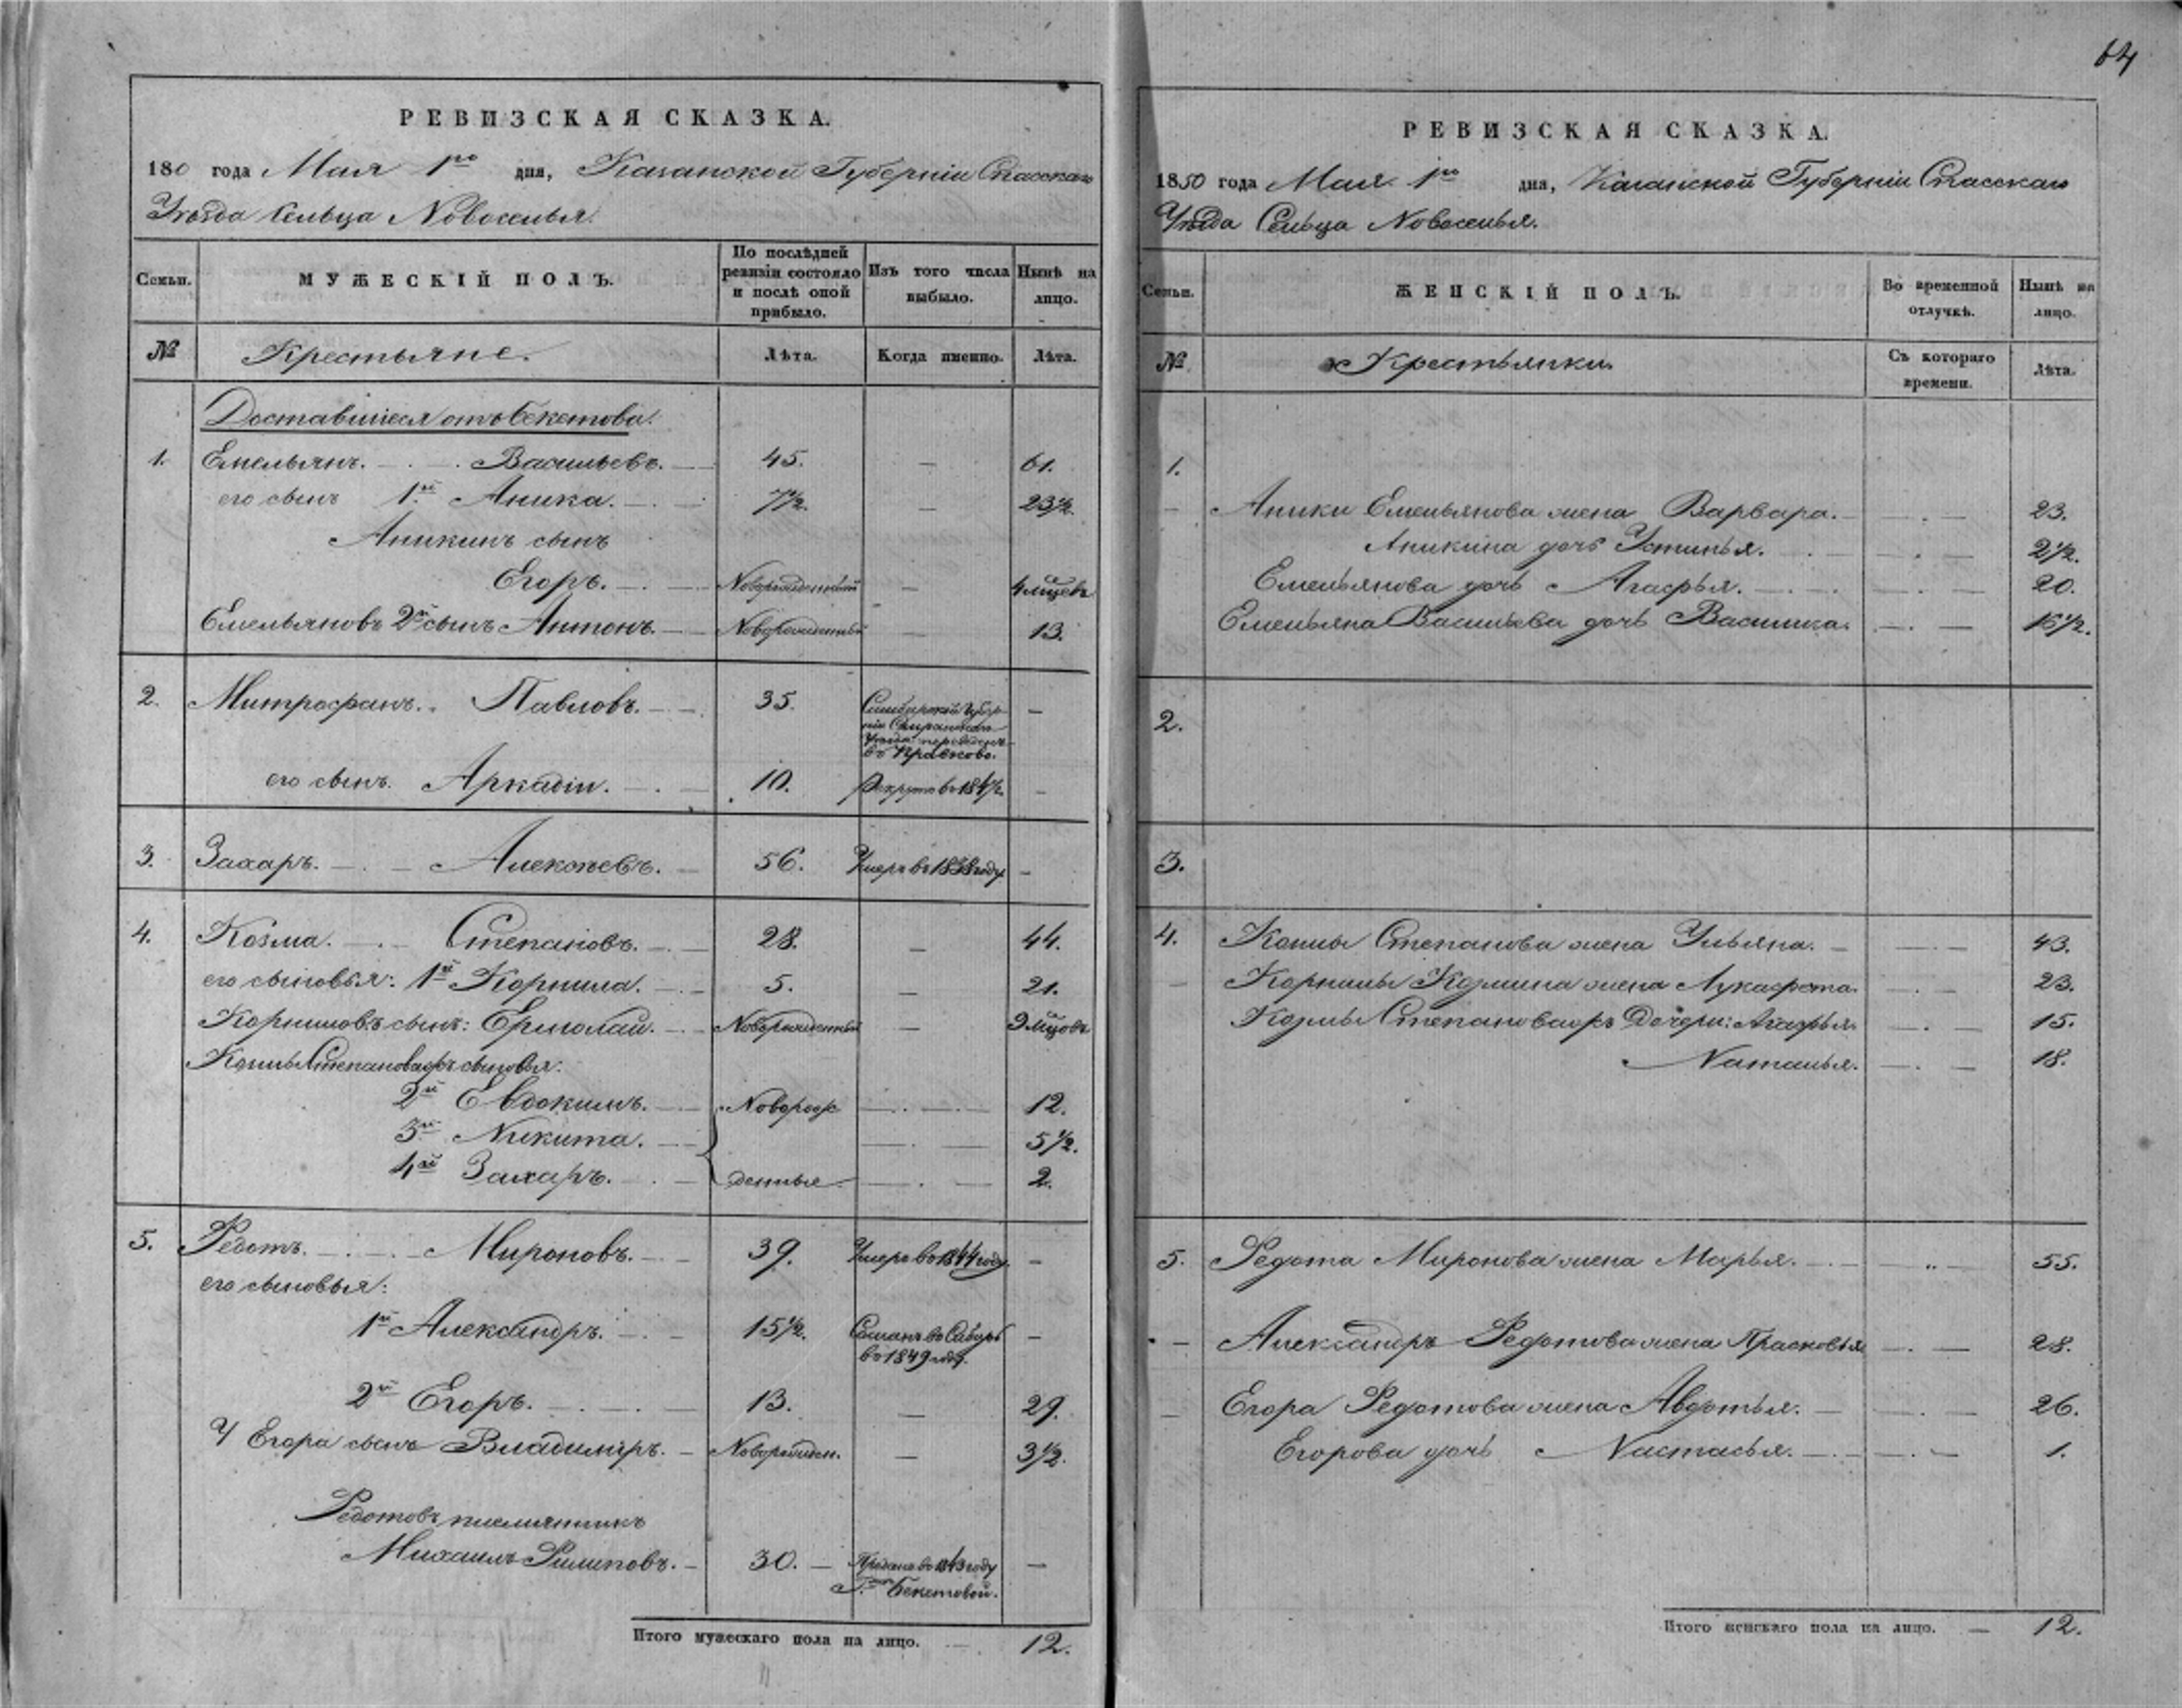 64
РЕВИЗСКАЯ СКАЗКА.
180 года Мая 1го дня, Казанской Губернии Спасскаго
Уѣзда Сельца Новоселья.
Семьи.
МУЖЕСКІЙ ПОЛЪ.
По послѣдней ревизіи состояло и послѣ оной прибыло.
Изъ того числа выбыло.
Ныне на лицо.
№
Крестьяне.
Лѣта.
Когда именно.
Лѣта.
Доставшіеся отъ Бекетова.
1. Емельянъ. Васильевъ. 45. — 61.
его сынъ 1й Аника. 7½. — 23½.
Аникинъ сынъ
Егоръ. Новорожденный — 4 мцевъ
Емельяновъ 2й сынъ Антонъ. Новорожденный — 13.
2. Митрофанъ. Павловъ. 35. —
Симбирской Губер-
ніи Сызранскаго
Уѣзда
его сынъ. Аркадіи. 10. —
3. Захаръ. Алексѣевъ. 56. Умеръ въ 1838 году —
4. Козма. Степановъ. 28. — 44.
его сыновья: 1й Корнила. 5. — 21.
Корниловъ сынъ: Ермолай. Новорожденный — 9 мцовъ
Козмы Степанова сыновья:
2й Евдокимъ. Новорож 12.
3й Никита. 5½.
4й Захаръ. денные 2.
5. Федотъ. Мироновъ. 39. Умеръ въ 1844 году. —
его сыновья:
1й Александръ. 15½. Сосланъ въ Сибирь —
въ 1849 году.
2й Егоръ. 13. — 29.
У Егора сынъ Владимиръ. Новорожден. — 3½.
Федотовъ племянникъ
Михаилъ Филиповъ. 30. Продан въ 1843 году —
Бекетовой.
Итого мужескаго пола на лицо. 12.
РЕВИЗСКАЯ СКАЗКА.
1850 года Мая 1го дня, Казанской Губерніи Спасскаго
Уѣзда Сельца Новоселья.
Семьи.
ЖЕНСКІЙ ПОЛЪ.
Во временной отлучкѣ.
Нынѣ на лицо.
№
Крестьянки.
Съ котораго времени.
Лѣта.
1.
Аники Емельянова жена Варвара. 23.
Аникина дочь Устинья. 2½.
Емельянова дочь Агафья. 20.
Емельяна Васильева дочь Василиса. 16½.
2.
3.
4. Козмы Степанова жена Ульяна. 43.
Корнилы Козмина жена Лукафета. 23.
Козмы Степанова Дочери: Агафья. 15.
Наталья. 18.
5. Федота Миронова жена Марья. 55.
Александръ Федотова жена Прасковья 28.
Егора Федотова жена Авдотья. 26.
Егорова дочь Настасья. 1.
Итого женскаго пола на лицо. — 12.